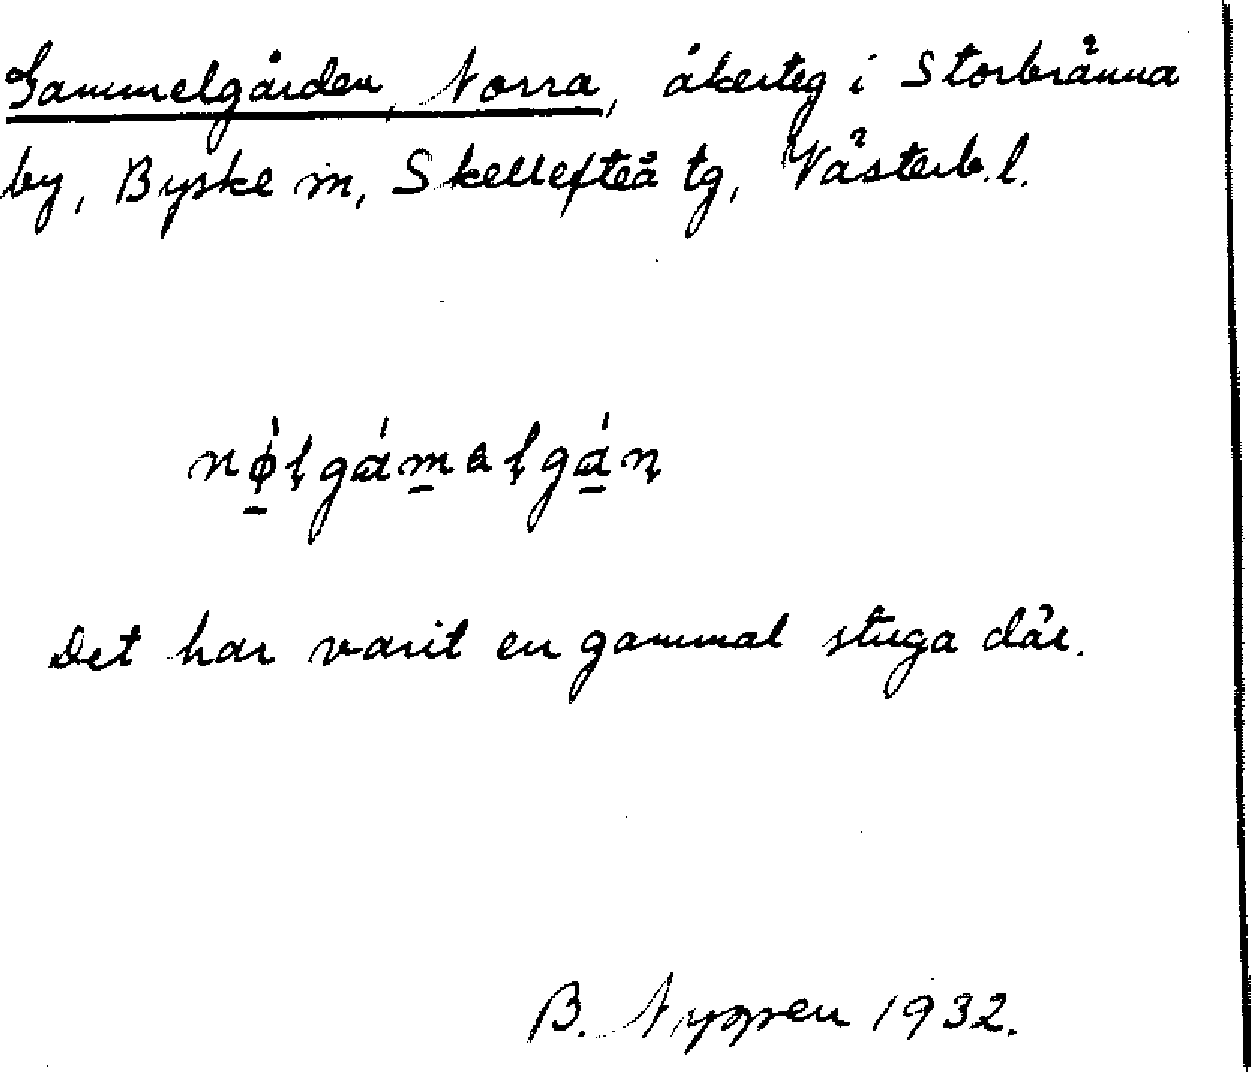 Gammelgården, Norra, åkerteg i Storbränna
by, Byske sn, Skellefteå tg, Västerb. l.
Det har varit en gammal stuga där.
B. 1932.